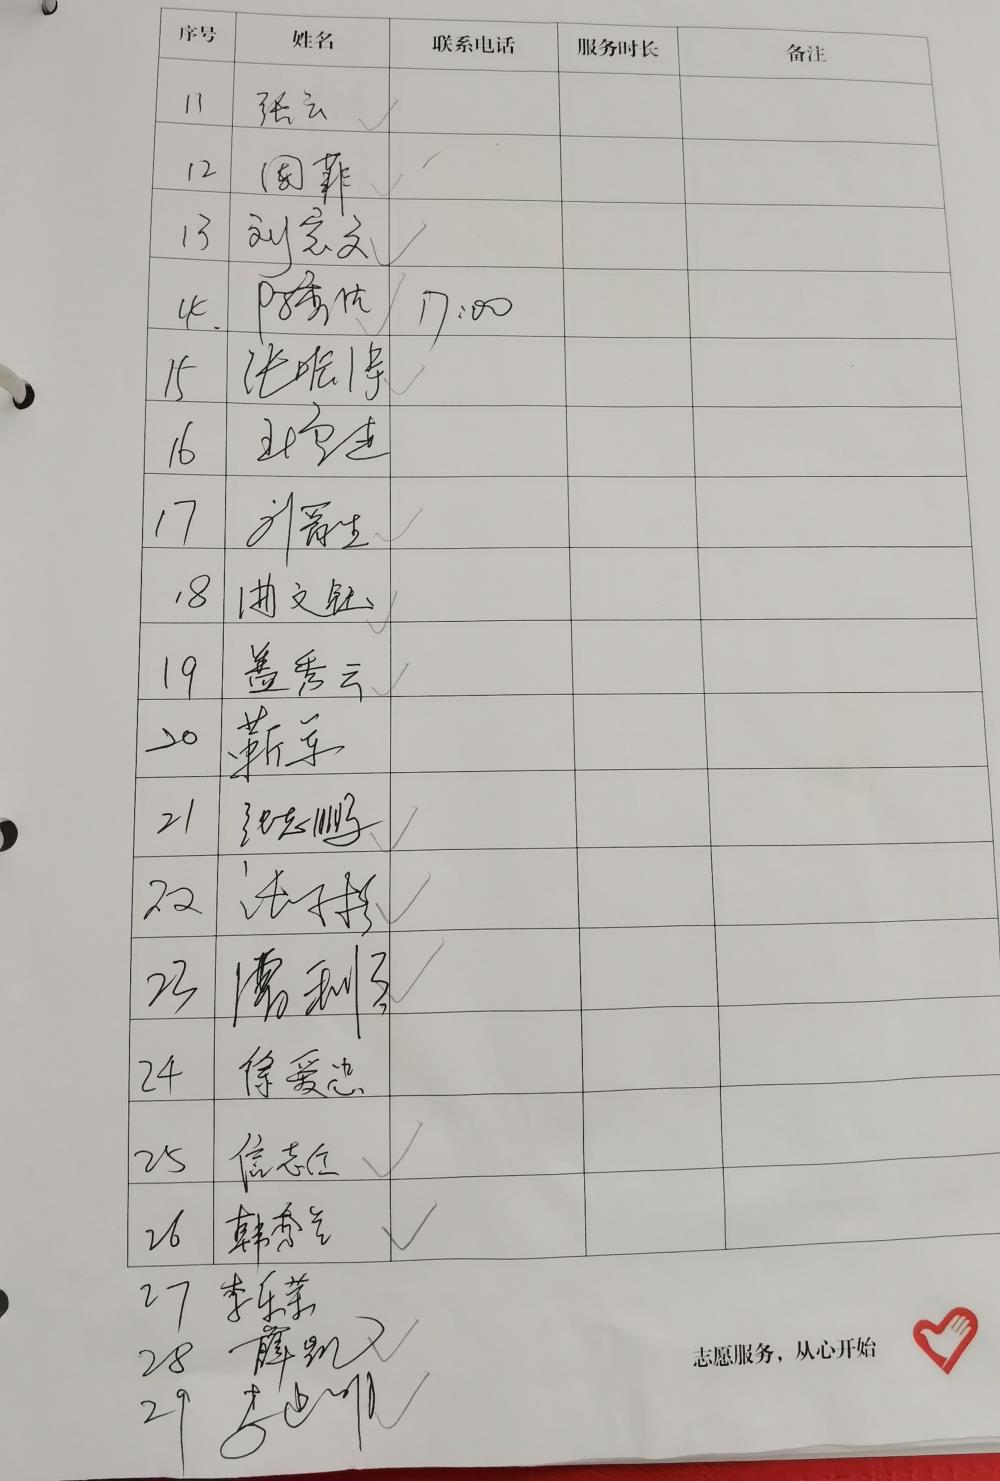 序号 姓名 联系电话 服务时长 备注
11 张云
12 国菲
13 刘宪文
14. 17:00
15 张
16
17 刘
18 曲文钰
19 盖秀云
20 靳军
21 张志鹏
22 张
23 利
24 徐爱忠
25 信志任
26 韩秀兰
27 李乐荣
28 薛凯
29 李
志愿服务，从心开始